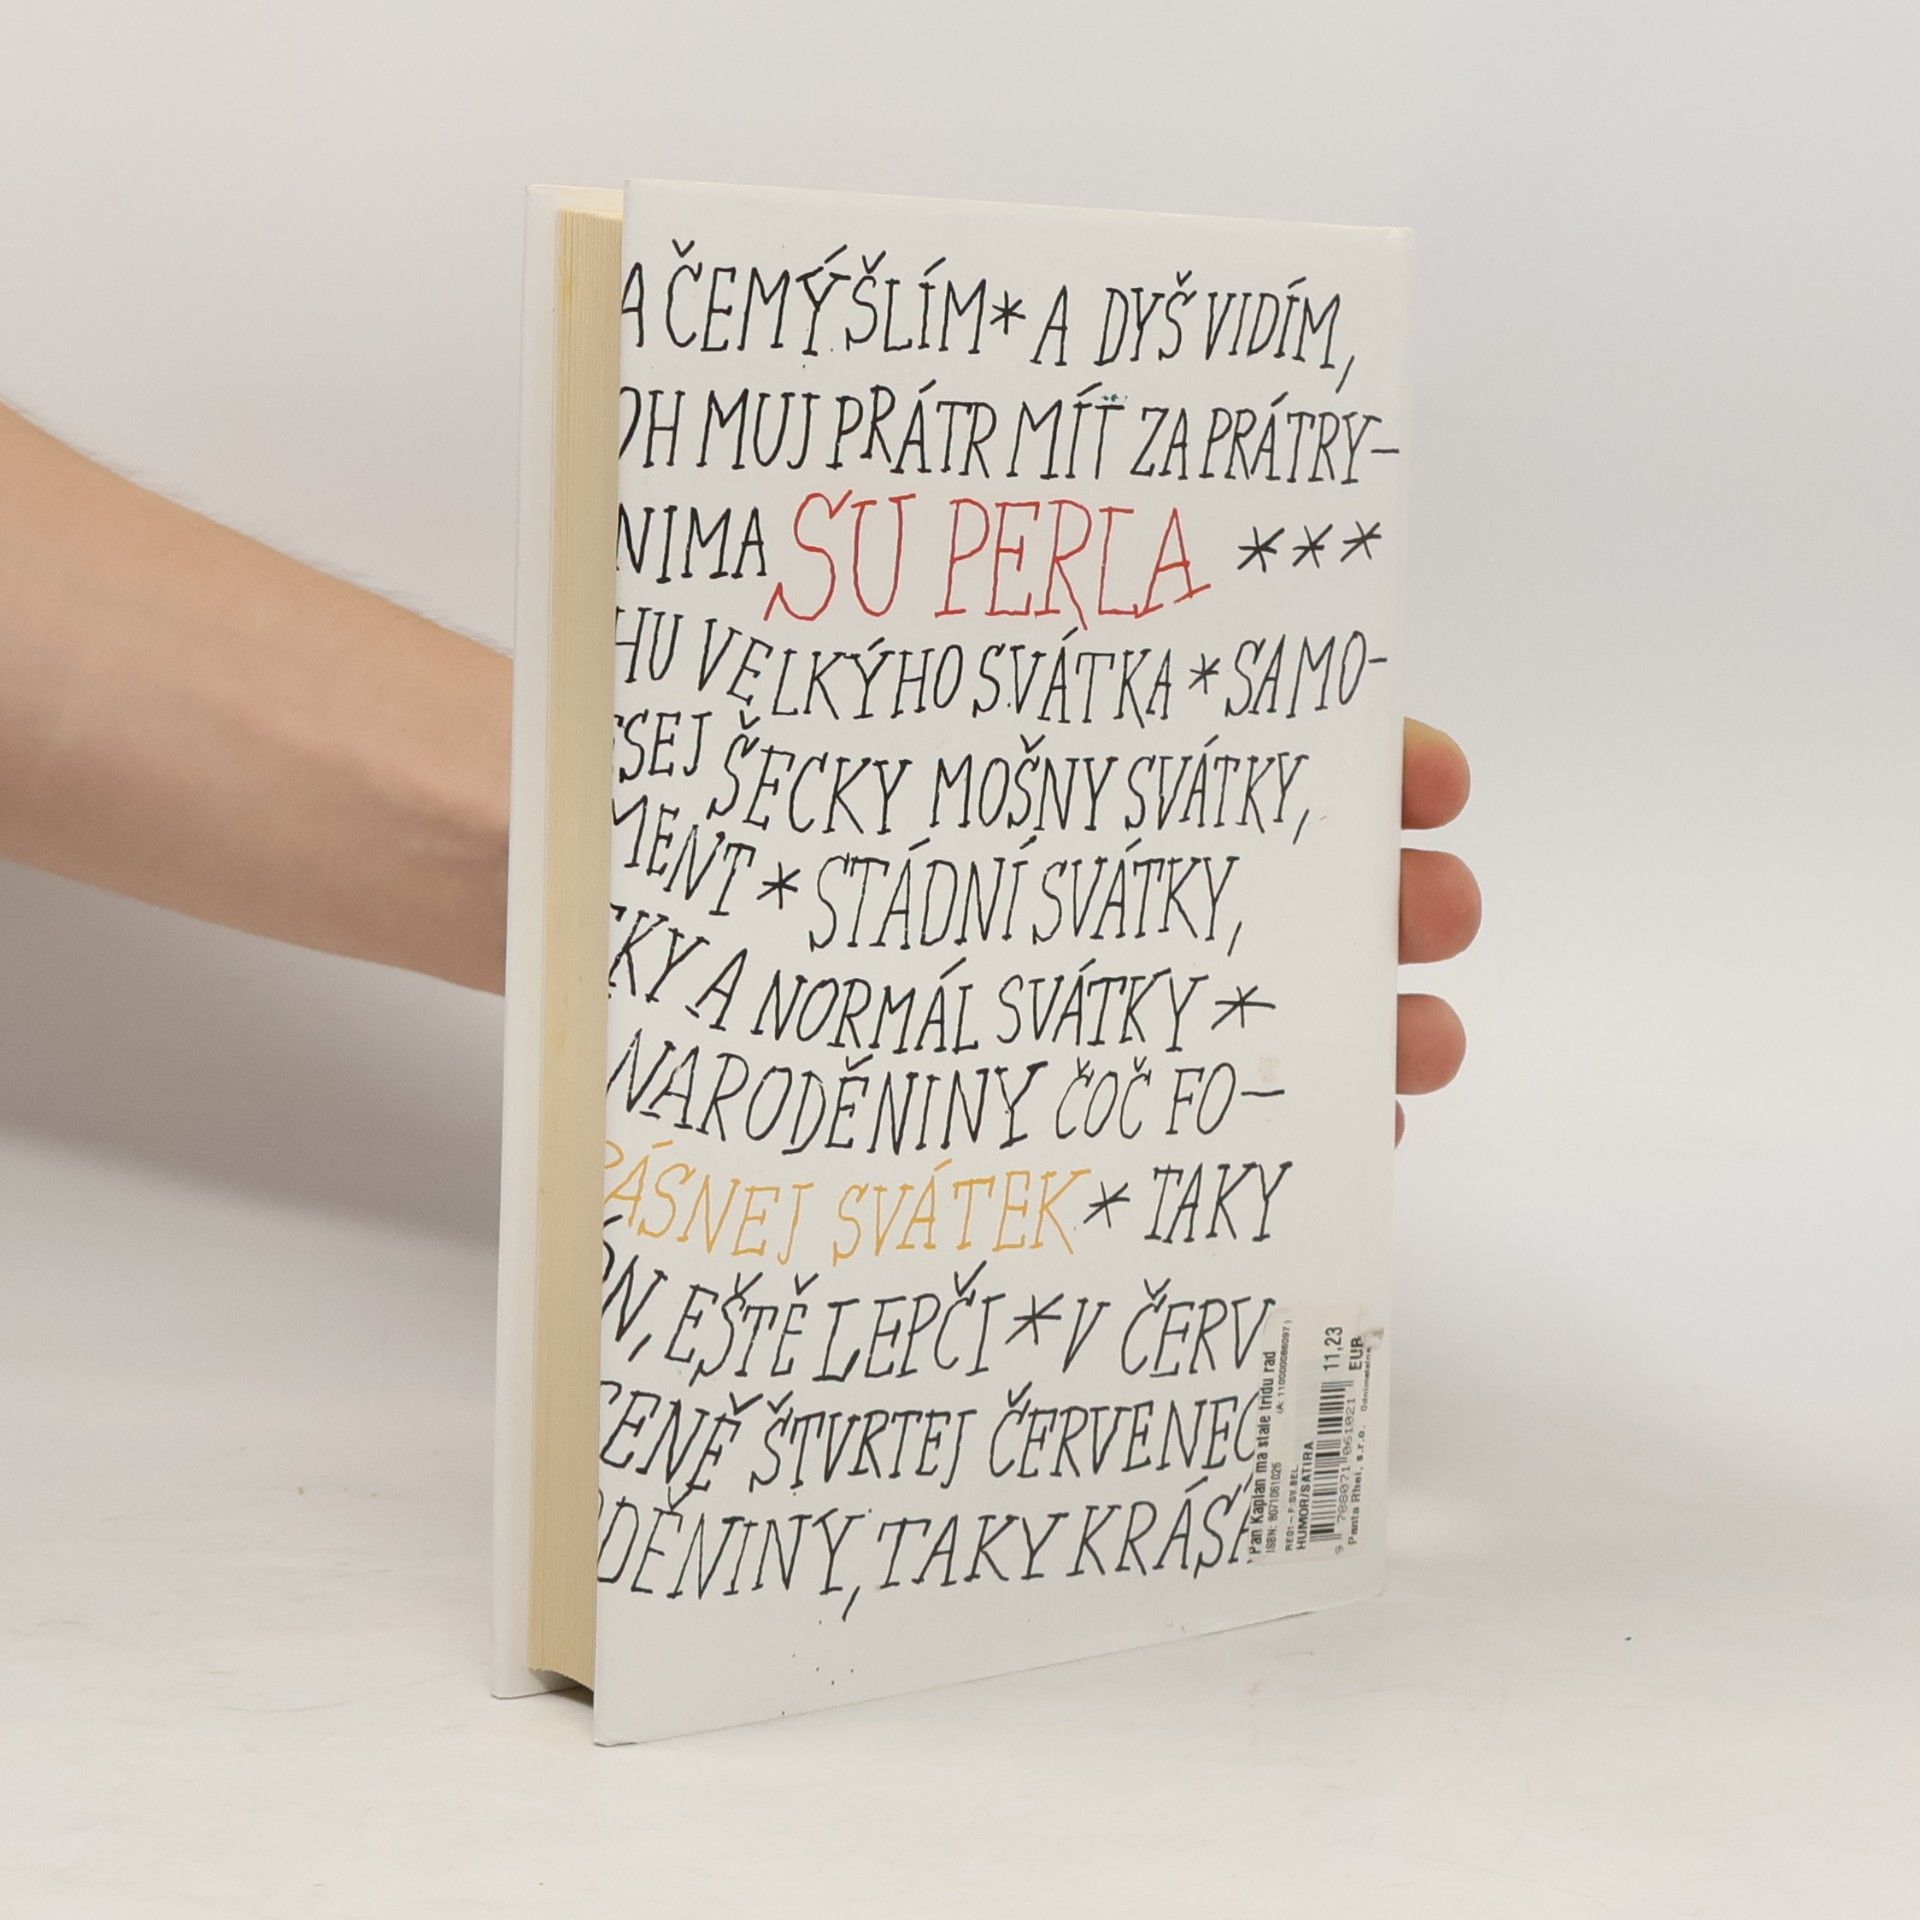 A ČEMÝŠLÍM * A DYŠ VIDÍM,
OH MUJ PRÁTR MÍŤ ZA PRÁTRY-
NIMA SU PERLA ***
HU VELKÝHO SVÁTKA * SAMO-
SEJ ŠECKY MOŠNY SVÁTKY,
MENT * STÁDNÍ SVÁTKY,
KY A NORMÁL SVÁTKY *
NARODĚNINY ČOČ FO-
ÁSNEJ SVÁTEK * TAKY
N, EŠTĚ LEPČI * V ČERV
CENĚ ŠTVRTEJ ČERVENEC
DĚNINY, TAKY KRÁSÁ
Pan Kaplan ma stale tridu rad
ISBN: 8071061026 (A: 1100000086097)
RE01 - F: SV.BEL.
HUMOR/SATIRA 11,23
9 788071 061021 EUR
Panta Rhei, s.r.o.